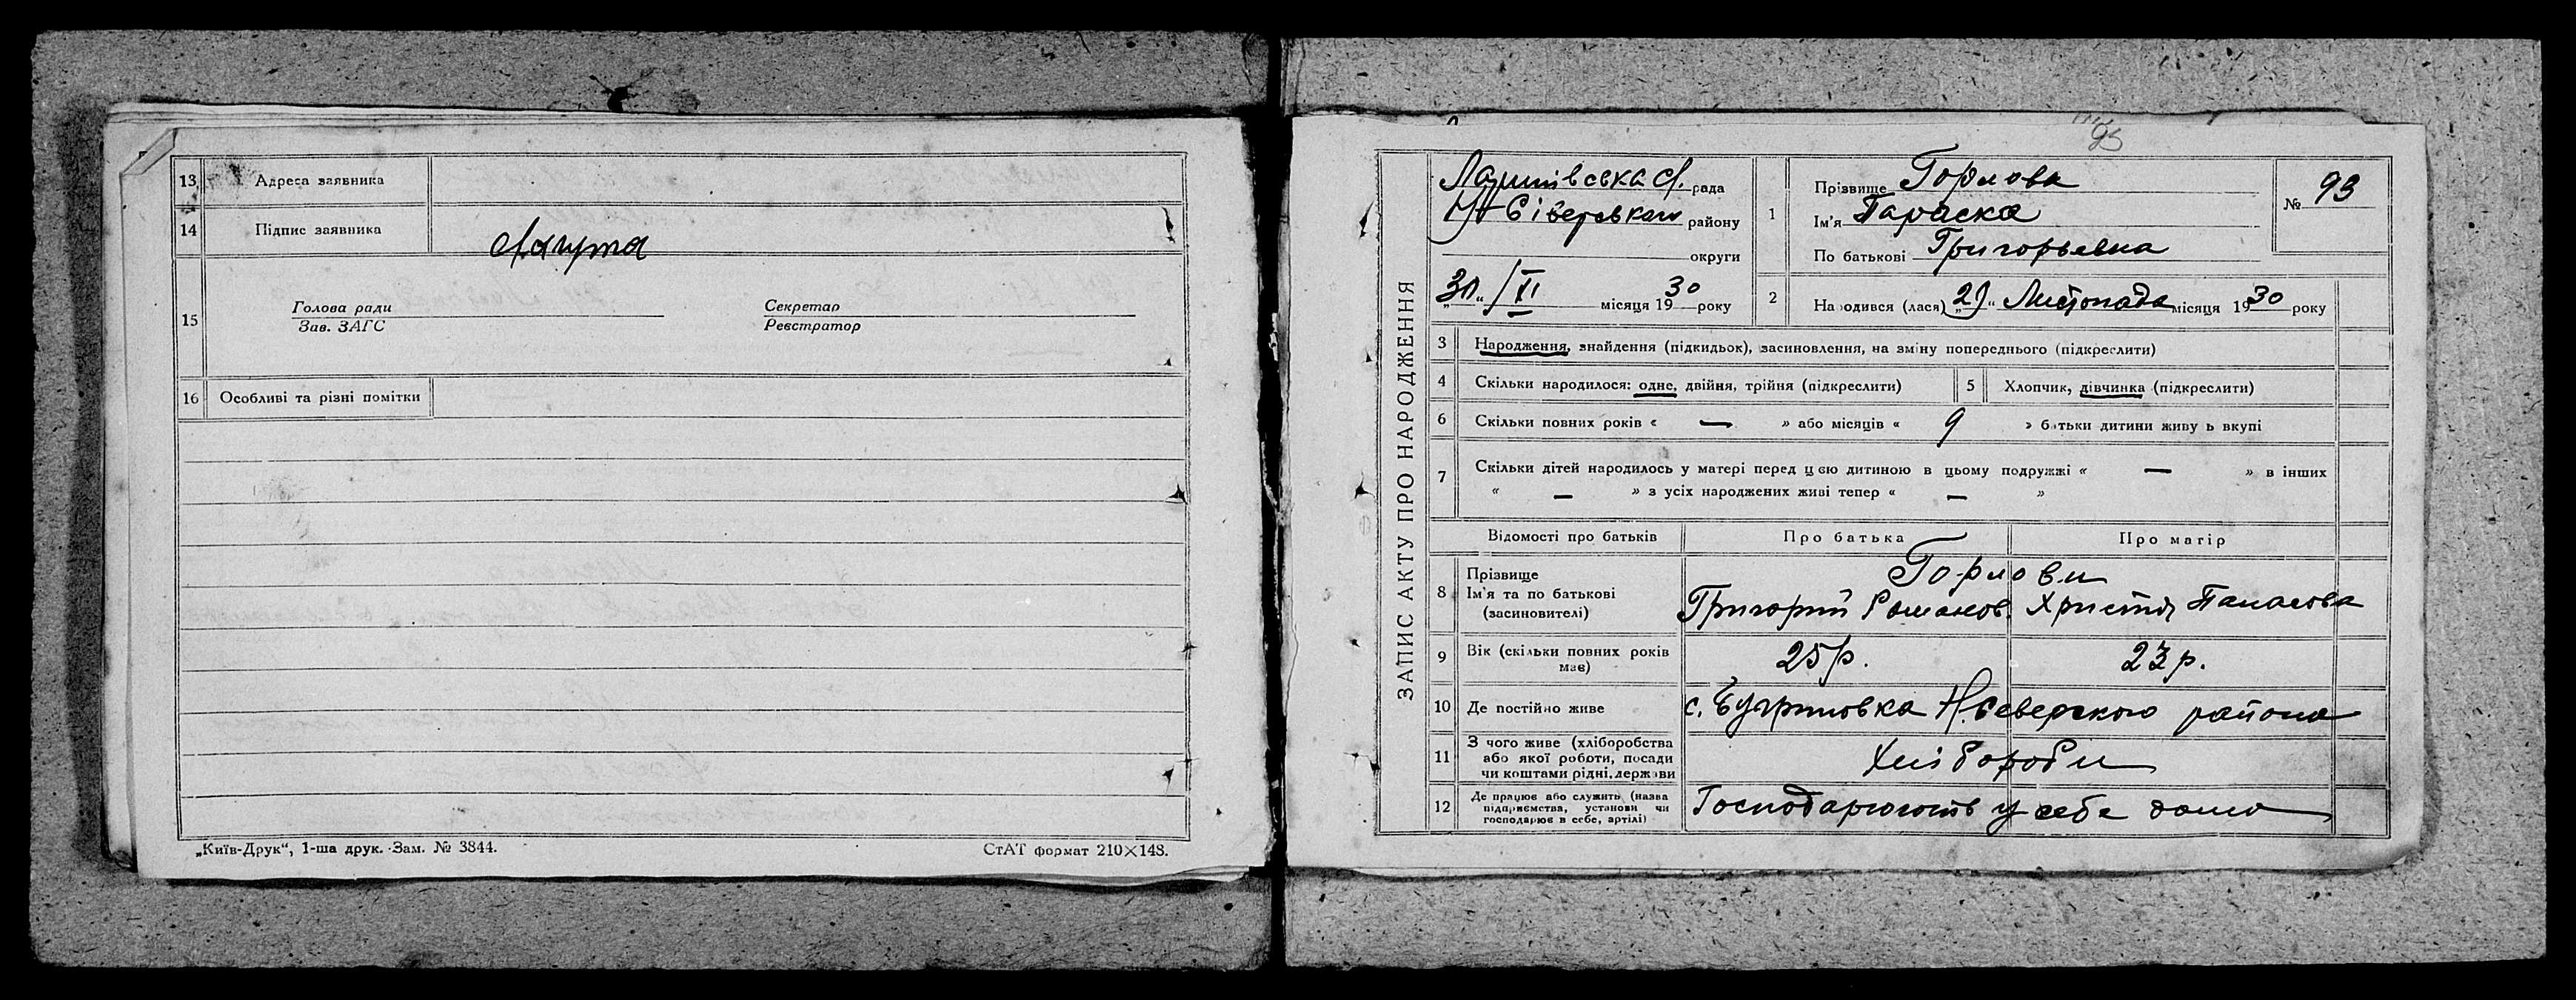 13 Адреса заявника
14 Підпис заявника
15 Голова ради Секретар
Зав. ЗАГС Реєстратор
16 Особливі та різні помітки
„Київ-Друк“, 1-ша друк. Зам. № 3844. СтАТ формат 210×148.
95
ЗАПИС АКТУ ПРО НАРОДЖЕННЯ
рада
Н Сіверського району
округи
„30“ / XI місяця 1930 року
1 Прізвище Горлова
Ім'я Параска
По батькові Григорьевна
№ 93
2 Народився (лася) „29“ Листопада місяця 1930 року
3 Народження, знайдення (підкидьок), засиновлення, на зміну попереднього (підкреслити)
4 Скільки народилося: одне, двійня, трійня (підкреслити) 5 Хлопчик, дівчинка (підкреслити)
6 Скільки повних років « — » або місяців « 9 » батьки дитини живуть вкупі
7 Скільки дітей народилось у матері перед цією дитиною в цьому подружжі « — » в інших
« — » з усіх народжених живі тепер « — »
Відомості про батьків Про батька Про матір
8 Прізвище Горлови
Ім'я та по батькові Григорий Романов. Христя Панасова
(засиновителі)
9 Вік (скільки повних років має) 25 р. 23 р.
10 Де постійно живе с. Бугриновка Н. Северского района
11 З чого живе (хліборобства
або якої роботи, посади
чи коштами рідні, держави Хлібороби
12 Де працює або служить (назва
підприємства, установи чи
господарює в себе, артілі) Господарюють у себе дома